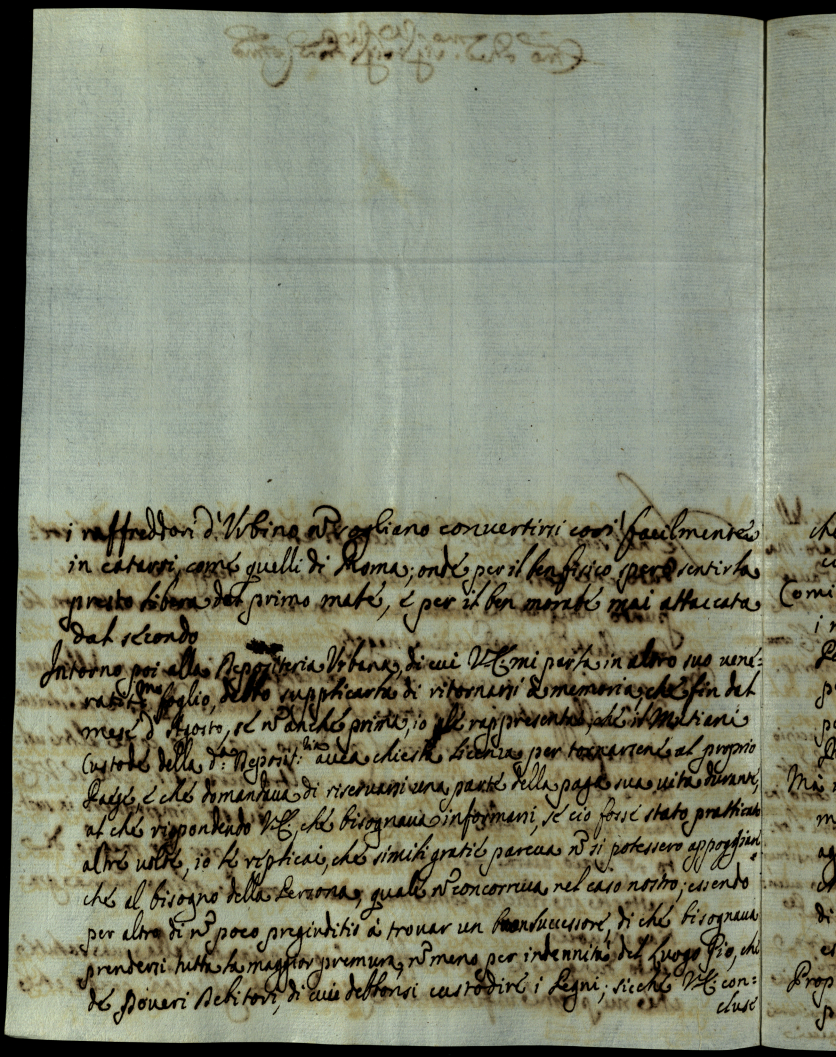 i raffreddori d'Urbino nõ vogliano convertirsi così facilmente
in catarri, come quelli di Roma; onde per il ben fisico spero sentirla
presto libera dal primo male, e per il ben morale mai attaccata
dal secondo
Intorno poi alla Depositeria Urbana, di cui V.E. mi parla in altro suo vene-
ratis.mo foglio, debbo supplicarla di ritornarsi a memoria, che fin dal
mese d'Agosto, se nõ anche prima, io le rappresentai, che il
Custode della d.a Deposit.ria avea chiesta licenza per tornarsene al proprio
Paese, e che domandava di riservarsi una parte della paga sua vita durante,
al che rispondendo V.E., che bisognava informarsi, se ciò fosse stato pratticato
altre volte, io le replicai, che simili gratie pareva nõ si potessero appoggiare
che al bisogno della Persona, quale nõ concorreva nel caso nostro; essendo
per altro di nõ poco pregiuditio à trovar un buon successore, di che bisognava
prendersi tutta la maggior premura, nõ meno per indennità del Luogo Pio, che
de Poveri Debitori, di cui debbonsi custodire i Pegni; sicche V.E. con-
cluse